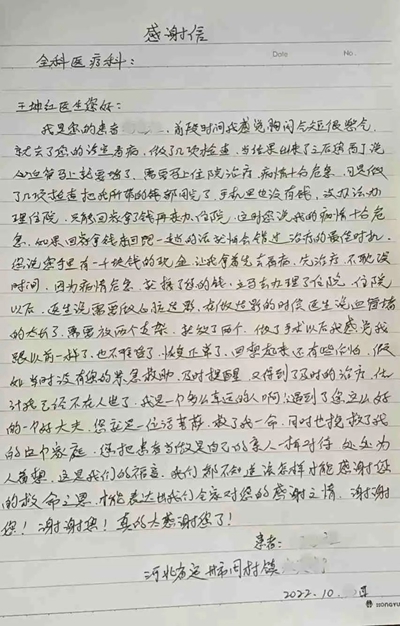 感谢信
Date No.
全科医疗科：
王坤红医生您好：
我是您的患者 ，前段时间我感觉胸闷气短很憋气
就去了您的诊室看病，做了几项检查，当结果出来了之后
心血管马上就要堵了，需要马上住院治疗，病情十分危急，可是做
了几项检查把我所带的钱都用完了，手里也没有钱，没办法办
理住院，只能回家拿了钱再来办住院，这时您说我的病情十分危
急，如果回家拿钱再回院一趟的话就怕会错过治疗的最佳时机，
您说您手里有一千块钱的现金，让我拿着先去看病，先治疗，不耽误
时间，因为病情危急，就接了您的钱，去办理了住院，住院
以后，医生说需要做心脏造影，在做造影的时候医生说血管堵
的太长了，需要放两个支架，就放了两个，做了手术以后我感觉我
跟以前一样了，也不憋醒了，恢复正常了，回想起来还有些后怕，假
如当时没有您的紧急救助，及时提醒，又得到了及时的治疗，估
计我已经不在人世了，我是一个多么幸运的人啊，遇到了您这么好
的一个好大夫，您就是一位活菩萨，救了我一命，同时也挽救了我
的这个家庭，您把患者当做是自己的亲人一样对待，处处为
人着想，这是我们的福音，我们都不知道该怎样才能感谢您
的救命之恩，才能表达出我们全家对您的感谢之情，谢谢
您！谢谢您！真的太感谢您了！
患者：
河北省定州市周村镇
2022.10. 日